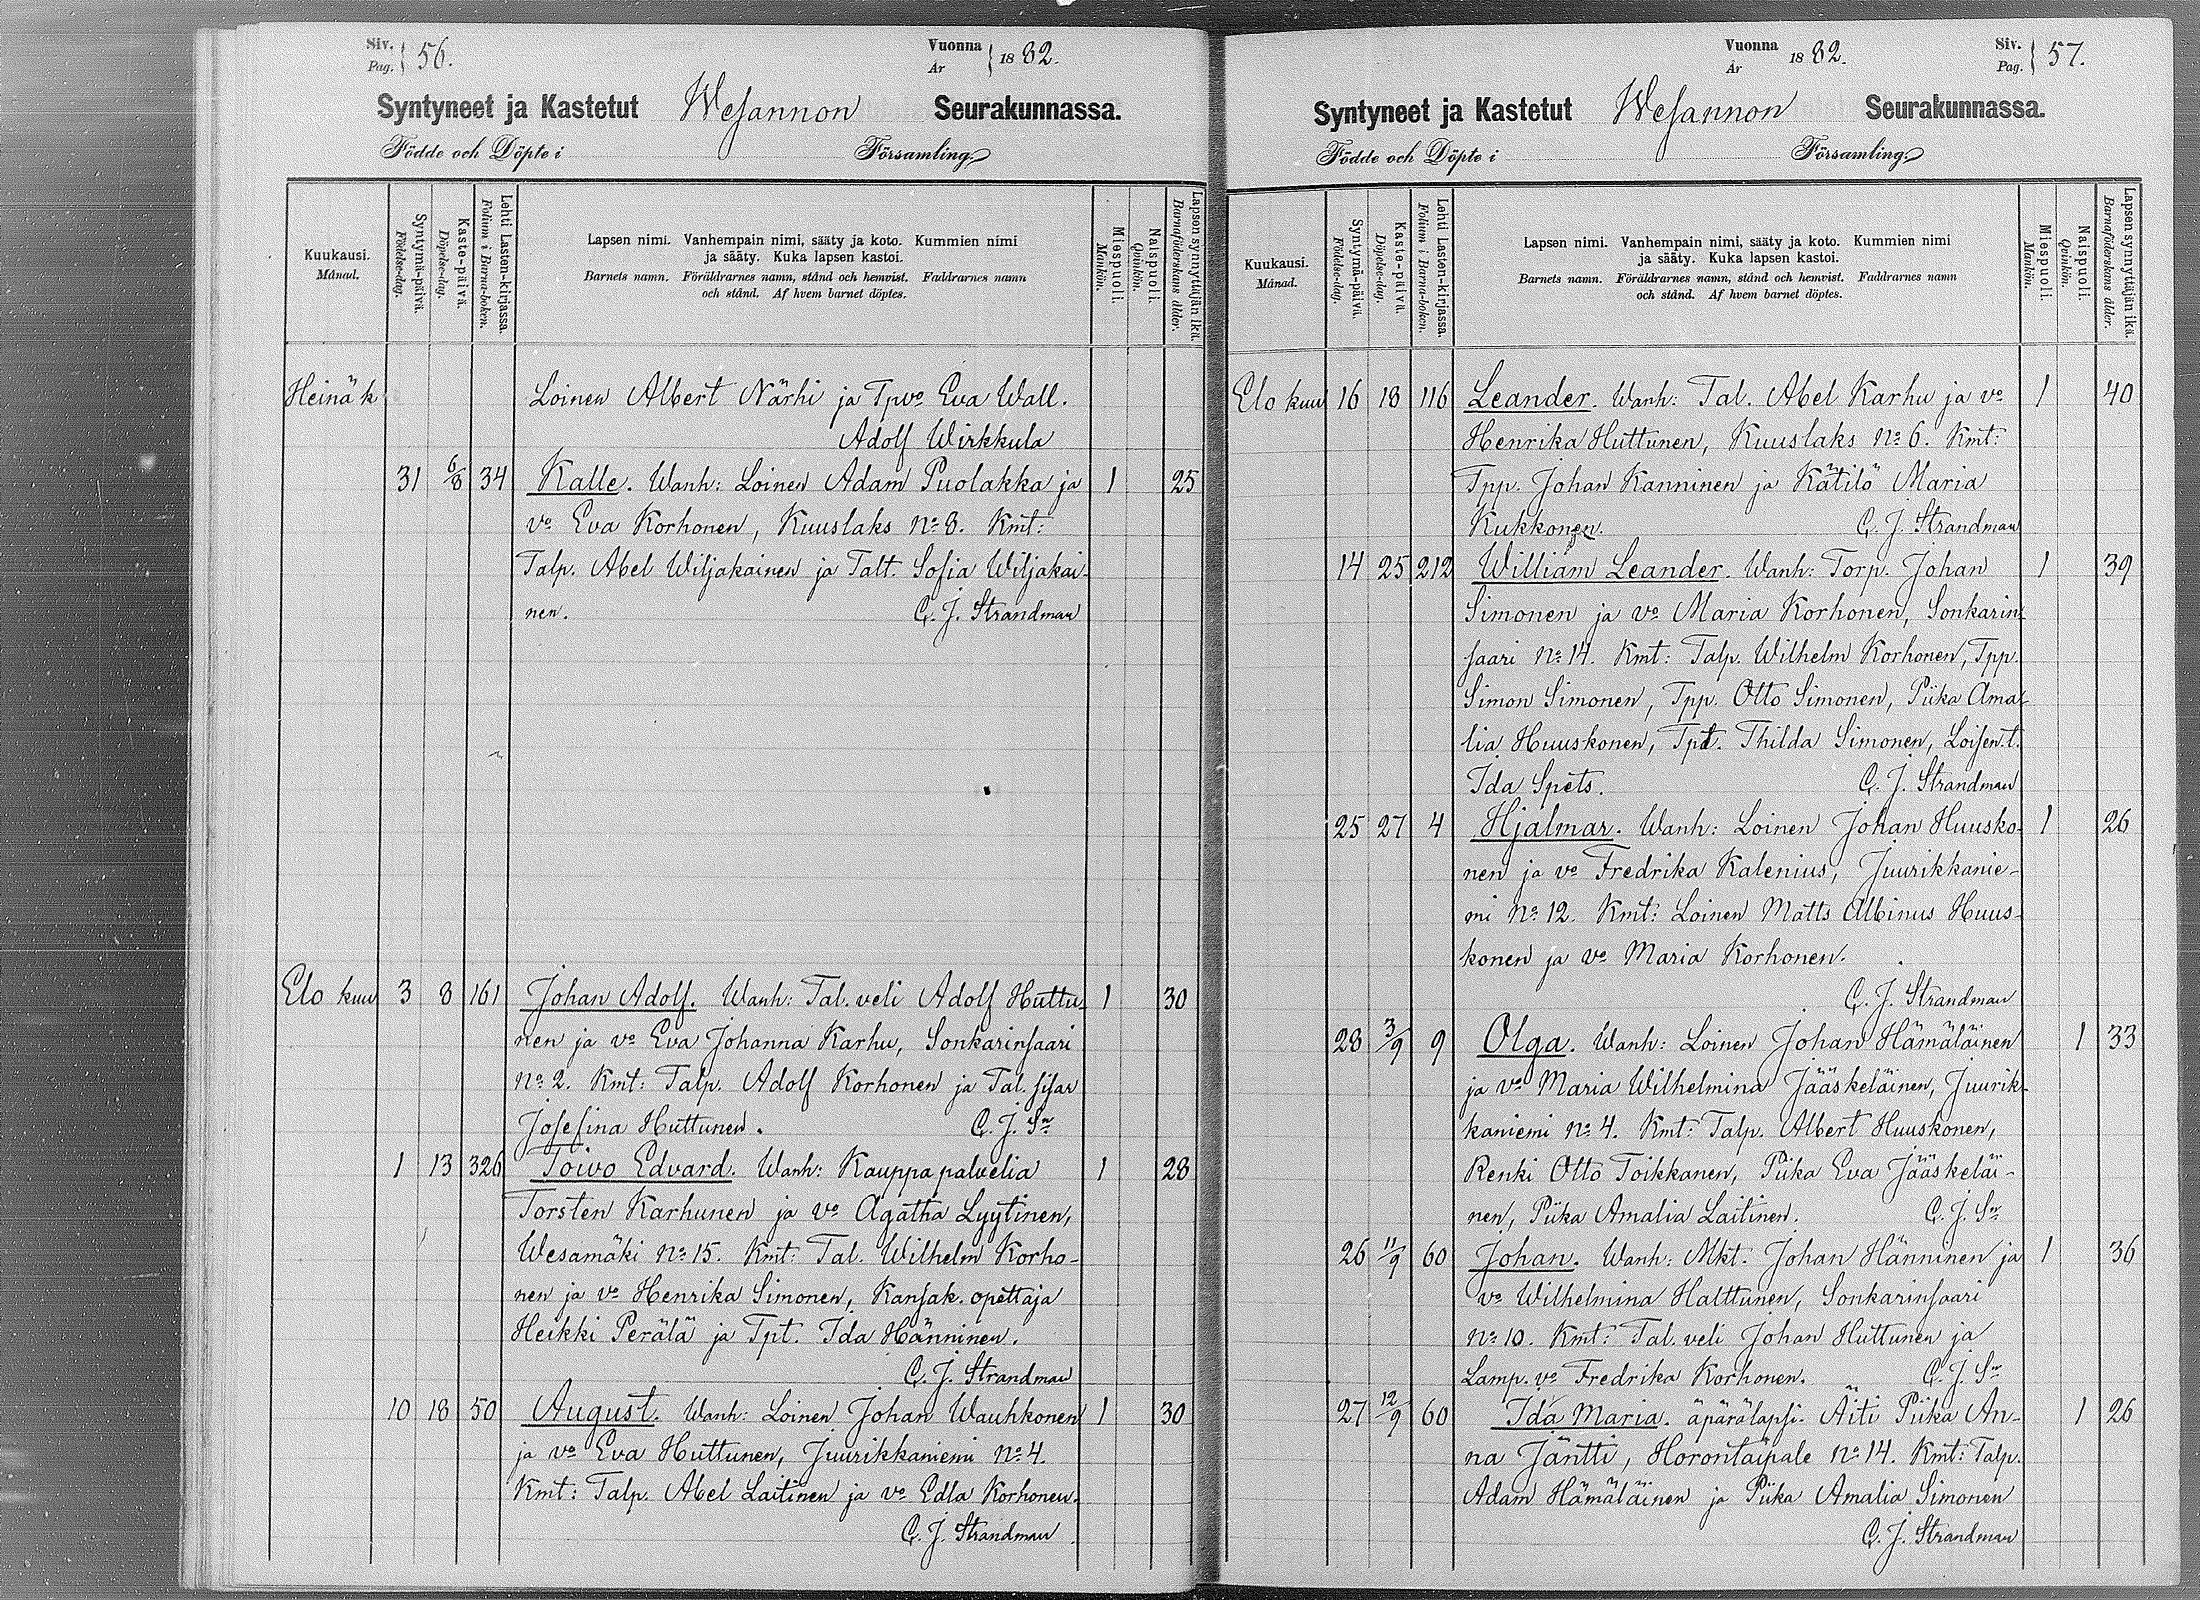 Siv. Pag. 56.
Vuonna År 1882.
Syntyneet ja Kastetut Wesannon Seurakunnassa.
Födde och Döpte i Församling.
Kuukausi. Månad.
Syntymä-päivä. Födelse-dag.
Kaste-päivä. Döpelse-dag.
Lehti Lasten-kirjassa. Folium i Barna-boken.
Lapsen nimi. Vanhempain nimi, sääty ja koto. Kummien nimi
ja sääty. Kuka lapsen kastoi.
Barnets namn. Föräldrarnes namn, stånd och hemvist. Faddrarnes namn
och stånd. Af hvem barnet döptes.
Miespuoli. Mankön.
Naispuoli. Qvinkön.
Lapsen synnyttäjän ikä. Barnaföderskans ålder.
Heinä k Loinen Albert Närhi ja Tpvo Eva Wall.
Adolf Wirkkula
31 6/8 34 Kalle. Wanh: Loinen Adam Puolakka ja 1 25
vo Eva Korhonen, Kuuslaks No 8. Kmt:
Talp. Abel Wiljakainen ja Talt. Sofia Wiljakai-
nen. C. J. Strandman
Elo kuu 3 8 161 Johan Adolf. Wanh: Tal. veli Adolf Huttu- 1 30
nen ja vo Eva Johanna Karhu, Sonkarinsaari
No 2. Kmt: Talp. Adolf Korhonen ja Tal. sisar
Josefina Huttunen. C. J. Sn
1 13 326 Toivo Edvard. Wanh: Kauppapalvelia 1 28
Torsten Karhunen ja vo Agatha Lyytinen,
Wesamäki No 15. Kmt: Tal. Wilhelm Korho-
nen ja vo Henrika Simonen, Kansak. opettaja
Heikki Perälä ja Tpt. Ida Hänninen.
C. J. Strandman
10 18 50 August. Wanh: Loinen Johan Wauhkonen 1 30
ja vo Eva Huttunen, Juurikkaniemi No 4.
Kmt: Talp. Abel Laitinen ja vo Edla Korhonen.
C. J. Strandman
Vuonna År 1882.
Siv. Pag. 57.
Syntyneet ja Kastetut Wesannon Seurakunnassa.
Födde och Döpte i Församling.
Kuukausi. Månad.
Syntymä-päivä. Födelse-dag.
Kaste-päivä. Döpelse-dag.
Lehti Lasten-kirjassa. Folium i Barna-boken.
Lapsen nimi. Vanhempain nimi, sääty ja koto. Kummien nimi
ja sääty. Kuka lapsen kastoi.
Barnets namn. Föräldrarnes namn, stånd och hemvist. Faddrarnes namn
och stånd. Af hvem barnet döptes.
Miespuoli. Mankön.
Naispuoli. Qvinkön.
Lapsen synnyttäjän ikä. Barnaföderskans ålder.
Elo kuu 16 18 116 Leander. Wanh: Tal. Abel Karhu ja vo 1 40
Henrika Huttunen, Kuuslaks No 6. Kmt:
Tpp. Johan Kanninen ja Kätilö Maria
Kukkonen. C. J. Strandman
14 25 212 William Leander. Wanh: Torp. Johan 1 39
Simonen ja vo Maria Korhonen, Sonkarin-
saari No 14. Kmt: Talp. Wilhelm Korhonen, Tpp.
Simon Simonen, Tpp. Otto Simonen, Piika Ama-
lia Huuskonen, Tpt. Thilda Simonen, Loisen t.
Ida Spets. C. J. Strandman
25 27 4 Hjalmar. Wanh: Loinen Johan Huusko- 1 26
nen ja vo Fredrika Kalenius, Juurikkanie-
mi No 12. Kmt: Loinen Matts Albinus Huus-
konen ja vo Maria Korhonen.
C. J. Strandman
28 3/9 9 Olga. Wanh: Loinen Johan Hämäläinen 1 33
ja vo Maria Wilhelmina Jääskeläinen, Juurik-
kaniemi No 4. Kmt: Talp. Albert Huuskonen,
Renki Otto Toikkanen, Piika Eva Jääskeläi-
nen, Piika Amalia Laitinen. C. J. Sn
26 11/9 60 Johan. Wanh: Mkt. Johan Hänninen ja 1 36
vo Wilhelmina Halttunen, Sonkarinsaari
No 10. Kmt: Tal. veli Johan Huttunen ja
Lamp. vo Fredrika Korhonen. C. J. Sn
27 12/9 60 Ida Maria. äpärälapsi. Äiti Piika An- 1 26
na Jäntti, Horontaipale No 14. Kmt: Talp.
Adam Hämäläinen ja Piika Amalia Simonen
C. J. Strandman